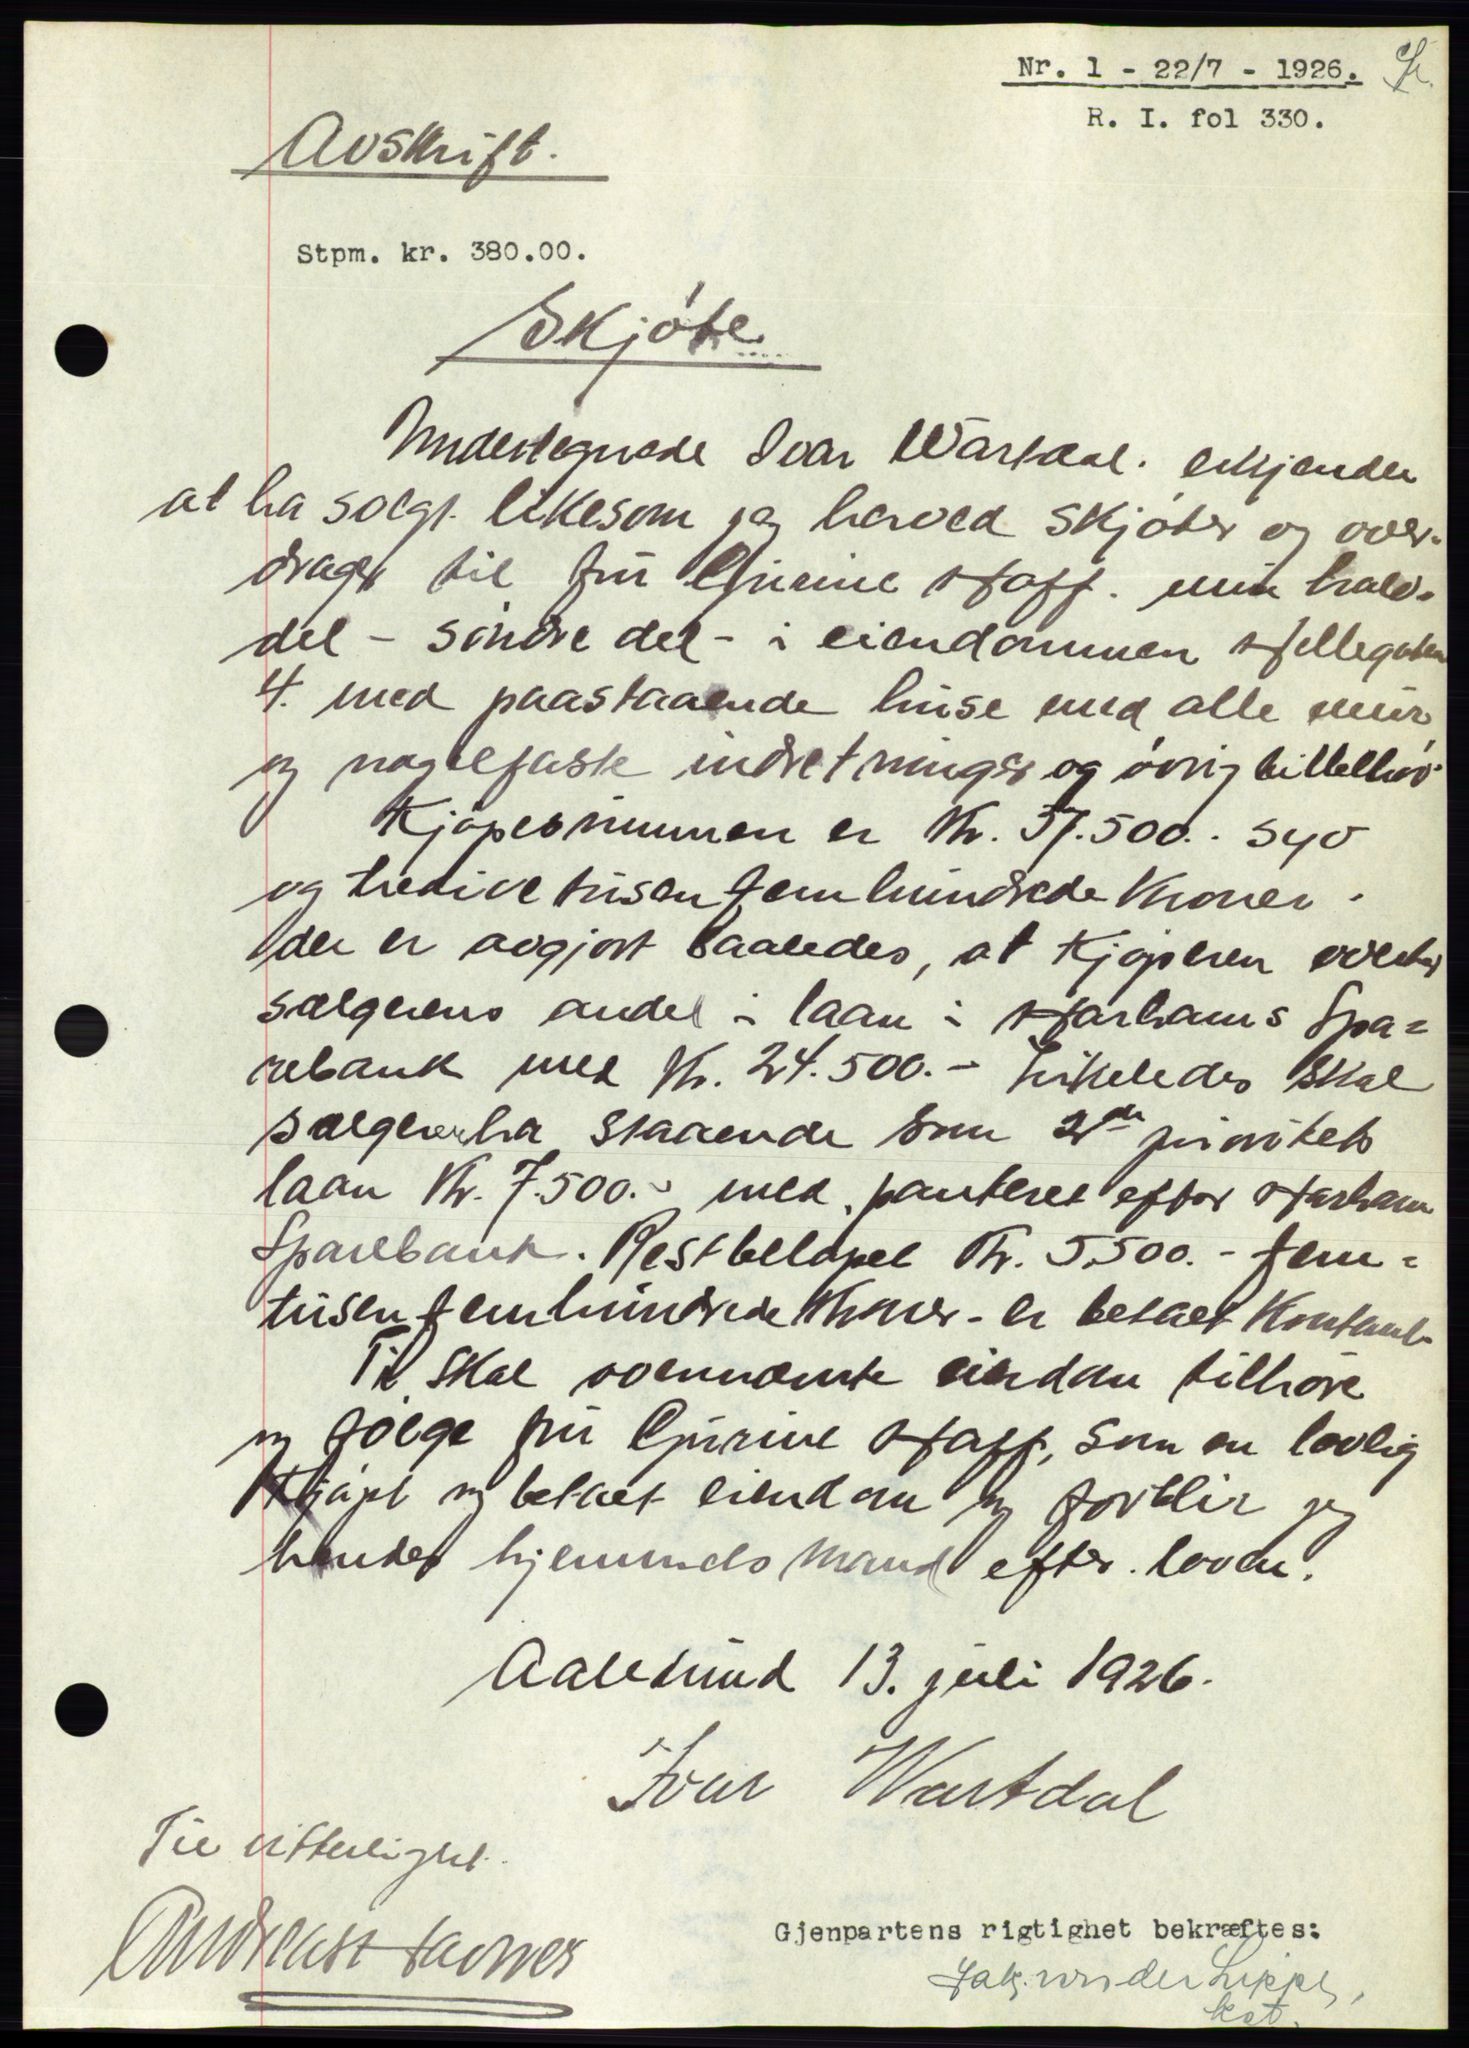 Nr. 1 - 22/7 - 1926.
R. I. fol 330.
Avskrift.
Stpm. kr. 380.00.
Skjöte
Undertegnede Ivar Wartdal. erkjender
at ha solgt likesom jeg herved skjöter og over-
drager til fru Gurine Hoff. min halv-
del - söndre del - i eiendommen Hellegaten
4. med paastaaende huse med alle mur
og naglefaste indretninger og övrig tilbehör.
Kjöpesummen er Kr. 37.500.- syv
og tredive tusen fem hundrede kroner.
der er avgjort saaledes, at kjöperen overtar
sælgerens andel i laan i Harhams Spa=
rebank med Kr. 24.500.- Likeledes skal
sælgeren ha staaende som 2den prioritets
laan Kr. 7.500.- med panteret efter Harham
Sparebank. Restbelöpet Kr. 5.500.- fem=
tusen fem hundrede kroner - er betalt kontant.
Ti skal ovennævnte eiendom tilhöre
og fölge fru Gurine Hoff, som en lovlig
kjöpt og betalt eiendom og forblir jeg
hendes hjemmels mand efter loven.
Aalesund 13. juli 1926.
Ivar Wartdal
Til vitterlighet.
Andreas Havnes
Gjenpartens rigtighet bekræftes:
Jak. von der Lippe,